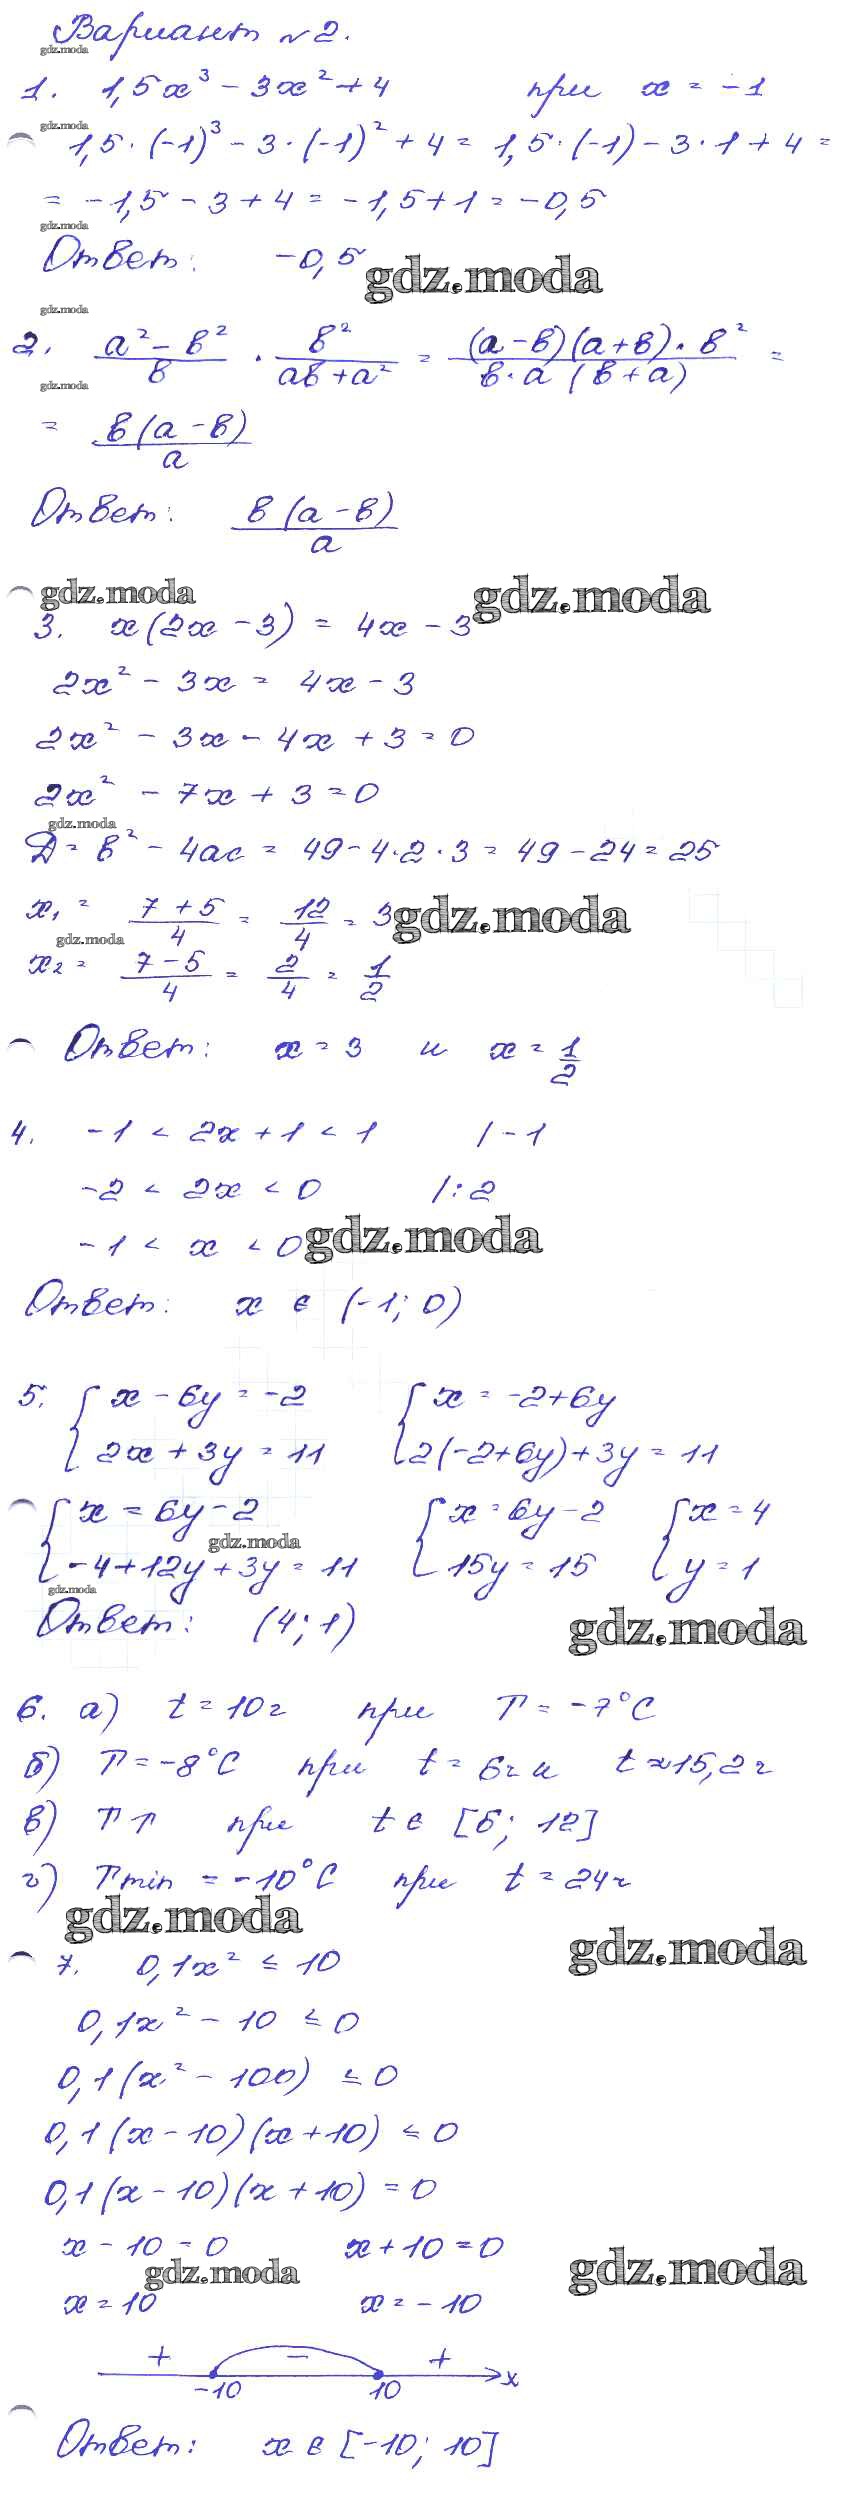 Вариант №2.
gdz.moda
1. 1,5x³ - 3x² + 4 при x = -1
gdz.moda
1,5·(-1)³ - 3·(-1)² + 4 = 1,5·(-1) - 3·1 + 4 =
= -1,5 - 3 + 4 = -1,5 + 1 = -0,5
gdz.moda
Ответ: -0,5
gdz.moda
gdz.moda
2. (a² - в²)/в · в²/(aв + a²) = ((a - в)(a + в)·в²)/(в·a(в + a)) =
gdz.moda
= в(a - в)/a
Ответ: в(a - в)/a
gdz.moda gdz.moda
3. x(2x - 3) = 4x - 3
2x² - 3x = 4x - 3
2x² - 3x - 4x + 3 = 0
2x² - 7x + 3 = 0
gdz.moda
Д = в² - 4ac = 49 - 4·2·3 = 49 - 24 = 25
x₁ = (7 + 5)/4 = 12/4 = 3
gdz.moda
gdz.moda
x₂ = (7 - 5)/4 = 2/4 = 1/2
Ответ: x = 3 и x = 1/2
4. -1 < 2x + 1 < 1 / -1
-2 < 2x < 0 /:2
-1 < x < 0
gdz.moda
Ответ: x ∈ (-1; 0)
5. { x - 6y = -2 { x = -2 + 6y
2x + 3y = 11 2(-2 + 6y) + 3y = 11
{ x = 6y - 2 { x = 6y - 2 { x = 4
gdz.moda
-4 + 12y + 3y = 11 15y = 15 y = 1
gdz.moda
Ответ: (4; 1)
gdz.moda
6. а) t = 10ч при T = -7°C
б) T = -8°C при t = 6ч и t ≈ 15,2ч
в) T↑ при t ∈ [6; 12]
г) Tmin = -10°C при t = 24ч
gdz.moda
gdz.moda
7. 0,1x² ≤ 10
0,1x² - 10 ≤ 0
0,1(x² - 100) ≤ 0
0,1(x - 10)(x + 10) ≤ 0
0,1(x - 10)(x + 10) = 0
x - 10 = 0 x + 10 = 0
gdz.moda gdz.moda
x = 10 x = -10
+ - +
-10 10 x
Ответ: x ∈ [-10; 10]